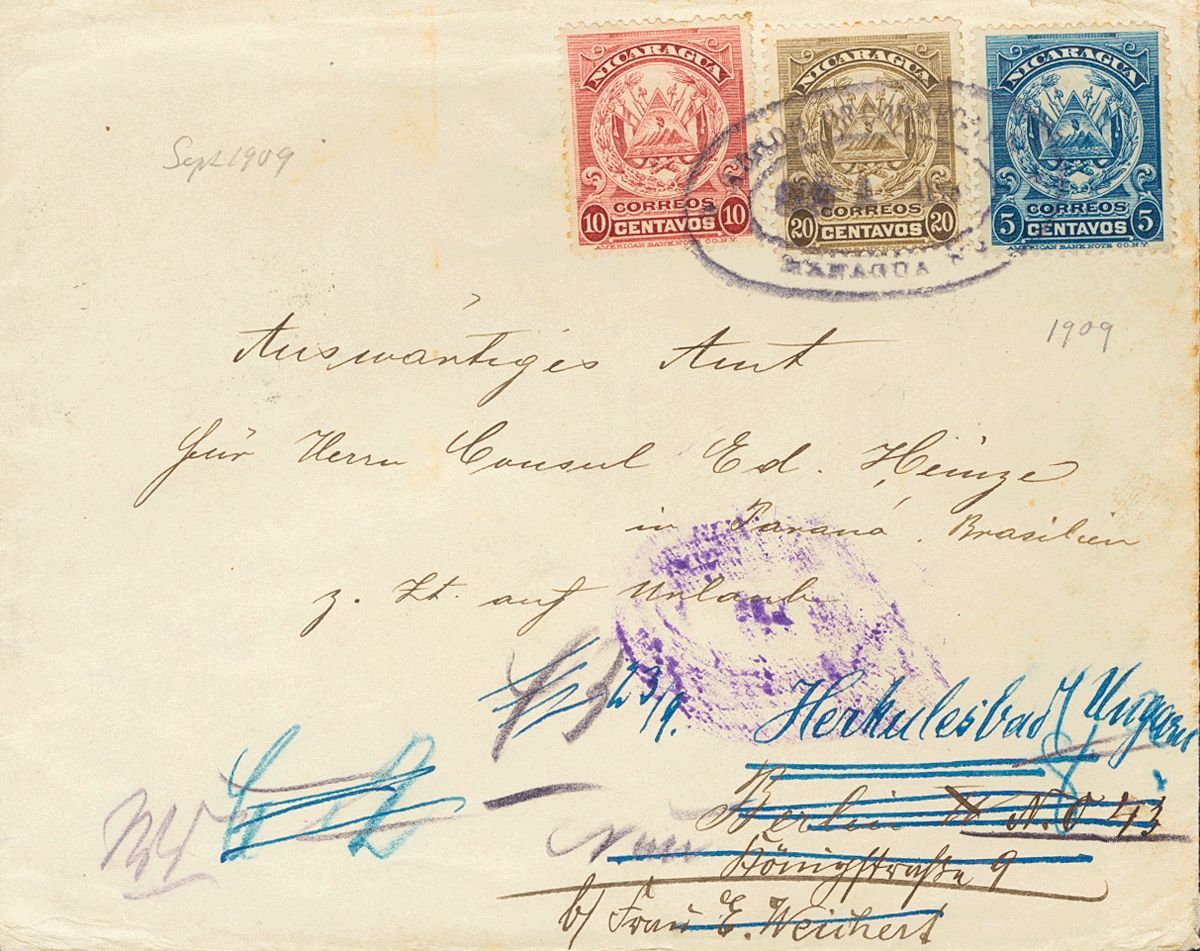 NICARAGUA NICARAGUA NICARAGUA
10 CORREOS CENTAVOS 10
AMERICAN BANK NOTE CO. N.Y.
20 CORREOS CENTAVOS 20
5 CORREOS CENTAVOS 5
AMERICAN BANK NOTE CO. N.Y.
MANAGUA
Sept 1909
1909
Auswärtiges Amt
für Herrn Consul Ed. Heinze
in Paraná, Brasilien
z. Zt. auf Urlaub
23/9.
Herkulesbad / Ungarn
Berlin N.O 43
Königstraße 9
b/ Frau E. Weichert